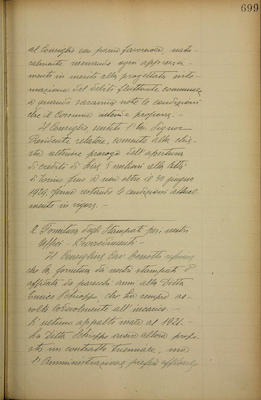 699
al Consiglio con parere favorevole, natu-
ralmente riservando ogni apprezza-
mento in merito alla progettata siste-
mazione del debito fluttuante comunale,
a quando saranno note le condizioni
che il Comune intende proporre.
Il Consiglio, sentito l'On. Signor
Presidente relatore, consente alla chie-
sta ulteriore proroga dell'apertura
di credito di 5 milioni alla Città
di Torino fino a non oltre il 30 giugno
1924, ferme restando le condizioni attual-
mente in vigore.
2. Fornitura degli Stampati per i nostri
Uffici - Provvedimenti -
Il Consigliere Cav.
che la fornitura dei nostri stampati è
affidata da parecchi anni alla Ditta
Enrico Schioppo che ha sempre as-
solto lodevolmente all'incarico.
L'ultimo appalto data al 1921.
La Ditta Schioppo aveva allora propo-
sto un contratto triennale, ma
l'Amministrazione